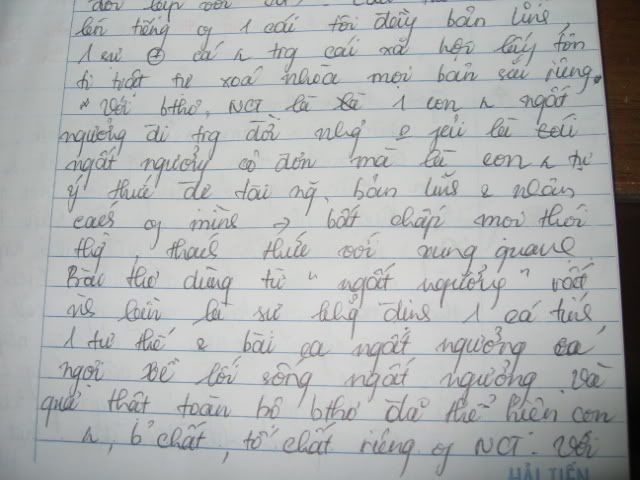 lên tiếng of 1 cái tôi đầy bản lĩnh,
1 sự cá n trg cái xã hội lấy tôn
ti trật tự xoá nhòa mọi bản sắc riêng.
với bthơ, NCT là 1 con n ngất
ngưởng đi trg đời nhg k phải là cái
ngất ngưởng cô đơn mà là con n tự
ý thức đc tài ng, bản lĩnh & nhân
cách of mình → bất chấp mọi thói
thg, thách thức với xung quanh
Bài thơ dùng từ " ngất ngưởng " rất
nh lần là sự khg định 1 cá tính
1 tư thế & bài ca ngất ngưởng ca
ngợi về lối sống ngất ngưởng. Và
quả thật toàn bộ bthơ đã thể hiện con
n, b chất, tố chất riêng of NCT. Với
HẢI TIẾN